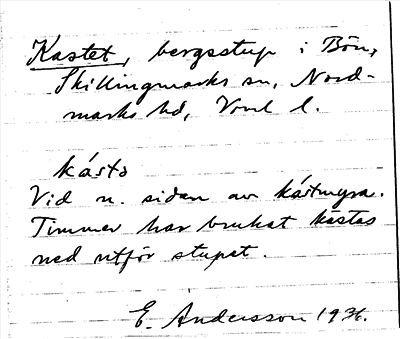 Kastet, bergsstup i Bön,
Skillingmarks sn, Nord-
marks hd, Vrml l.
kásto
Vid n. sidan av kástmyra.
Timmer har brukat kastas
ned utför stupet.
E. Andersson 1936.